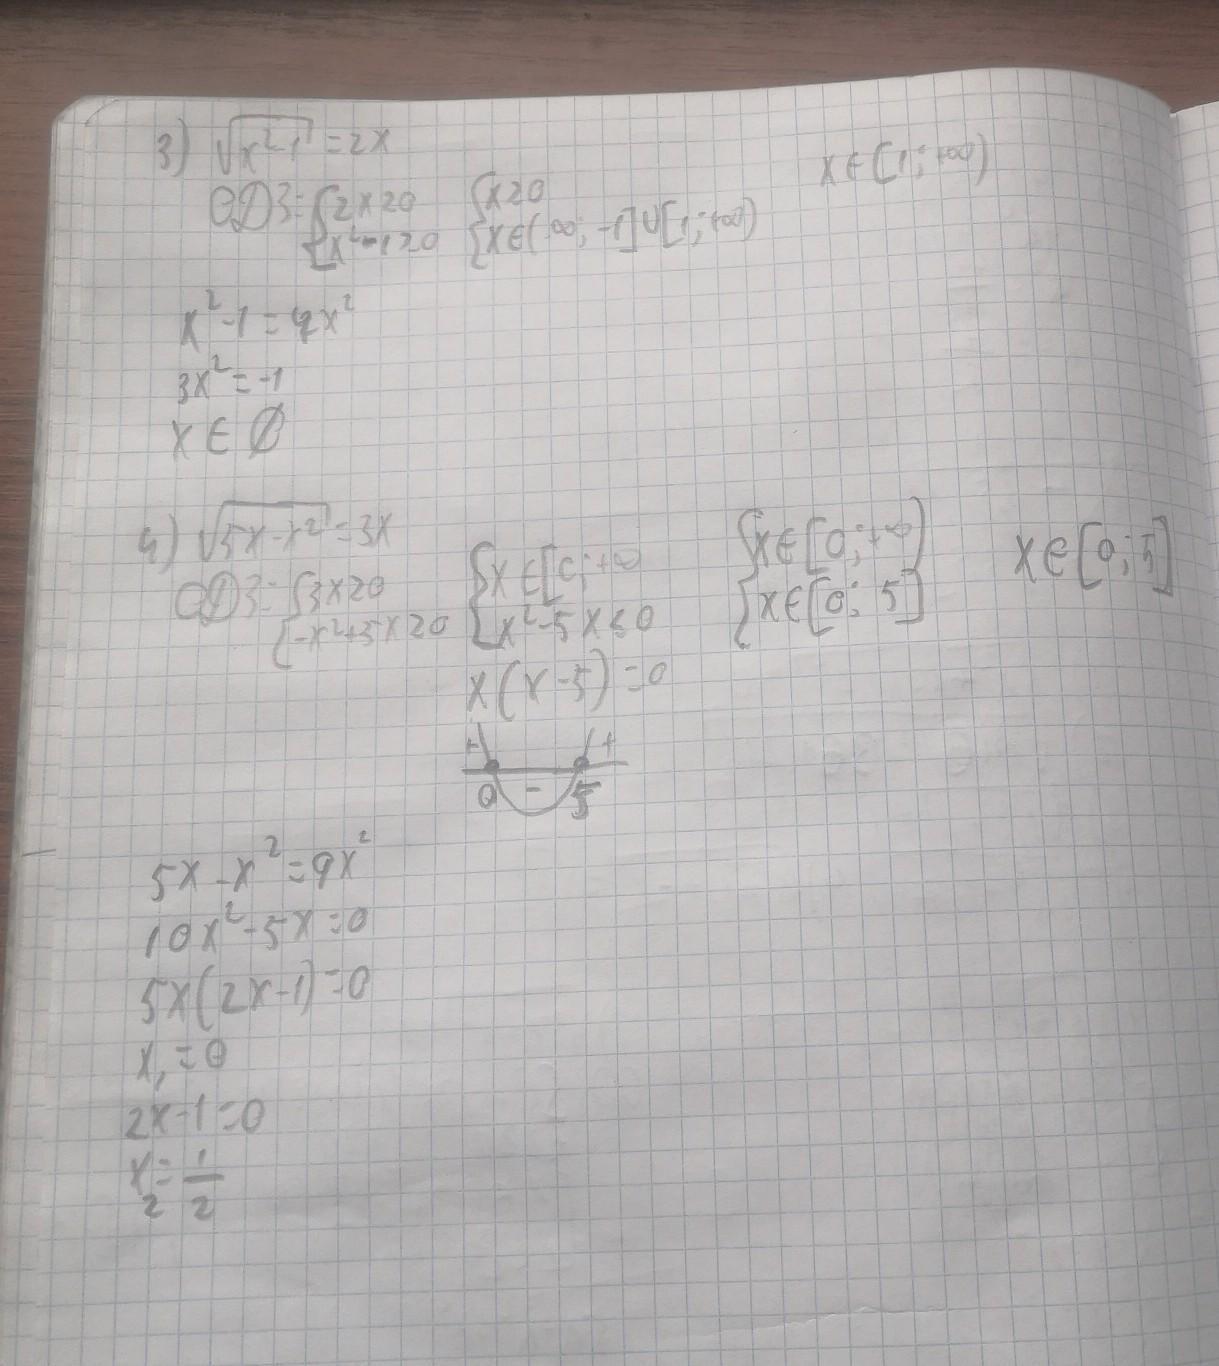 3) √x²-1 = 2x
ОДЗ = {2x≥0 {x≥0 x∈[1; +∞)
{x²-1≥0 {x∈(∞; -1]∪[1; +∞)
x²-1 = 4x²
3x² = -1
x∈∅
4) √5x-x² = 3x
ОДЗ = {3x≥0 {x∈[0; +∞ {x∈[0; +∞) x∈[0; 5]
{-x²+5x≥0 {x²-5x≤0 {x∈[0; 5]
x(x-5) = 0
+ +
0 - 5
5x-x² = 9x²
10x²-5x = 0
5x(2x-1) = 0
x₁ = 0
2x-1 = 0
x₂ = 1/2